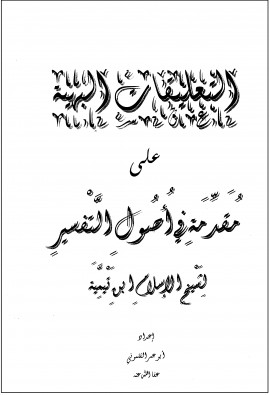 التعليقات البهية
على
مُقَدِّمَةٍ فِي أُصُولِ التَّفْسِيرِ
لِشَيْخِ الإِسْلَامِ ابْنِ تَيْمِيَّةَ
إعداد
أبو عمر القلموني
عفا الله عنه